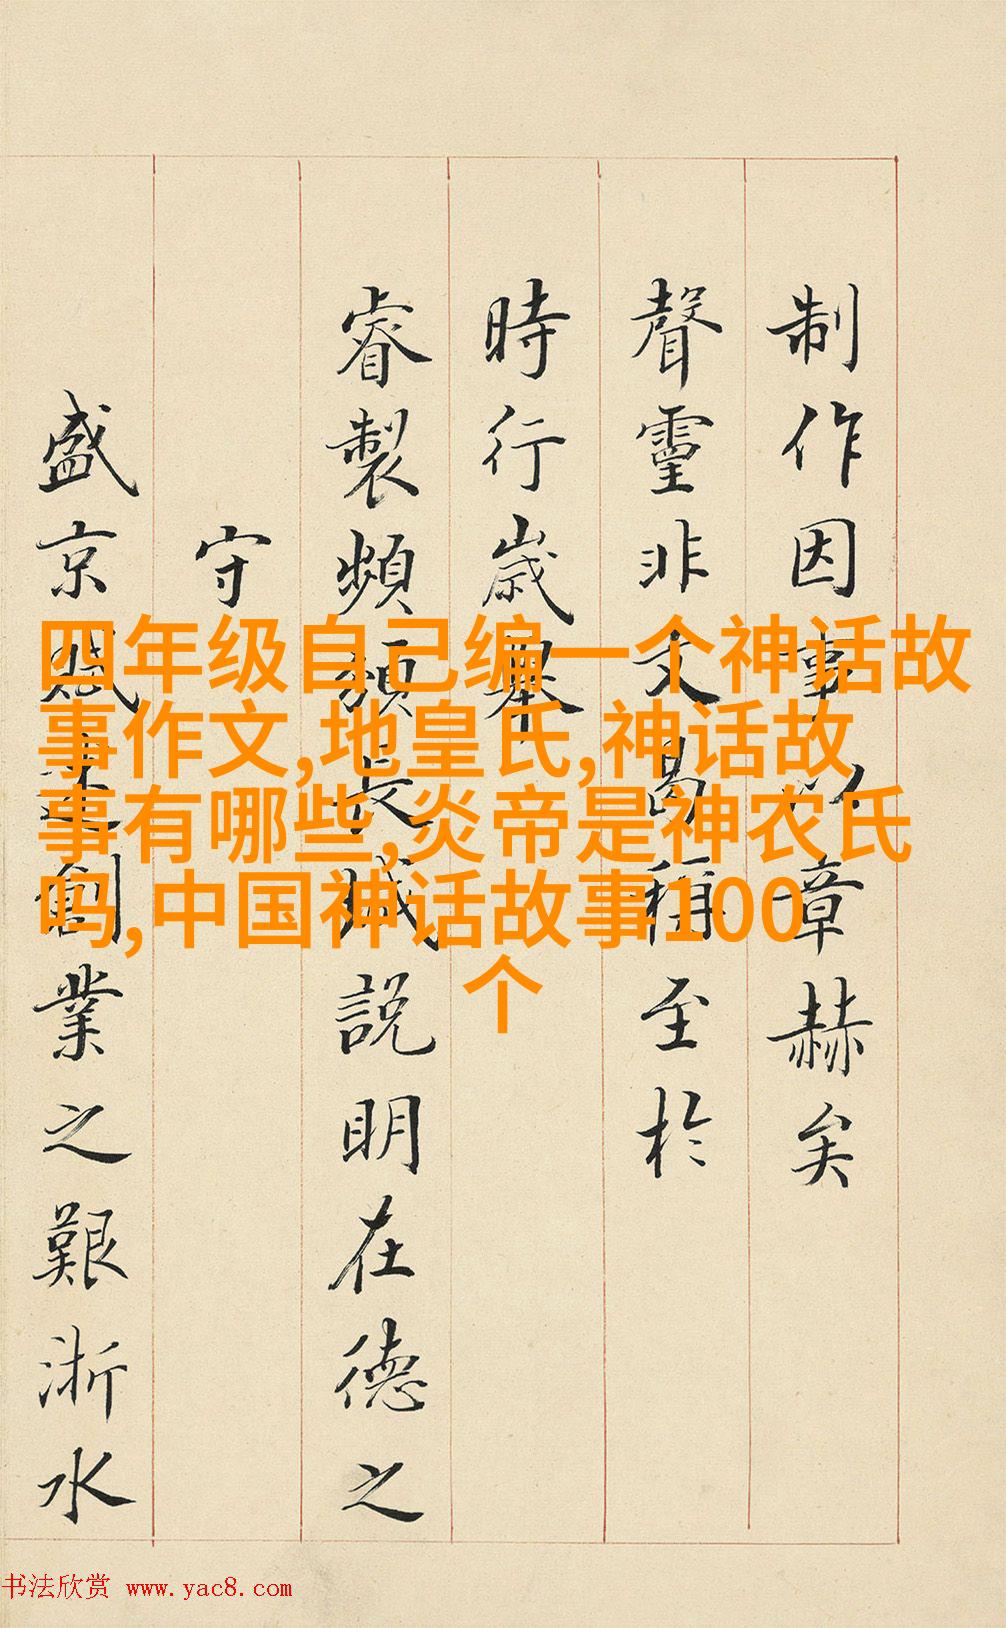 四年级自己编一个神话故
事作文,地皇氏,神话故
事有哪些,炎帝是神农氏
吗,中国神话故事100
个
制作因事以章赫矣
聲靈非文曷稱至於
時行歲舉
睿製頻頒長城説明在德之
守
盛京賦創業之艱浙水
书法欣赏 www.yac8.com